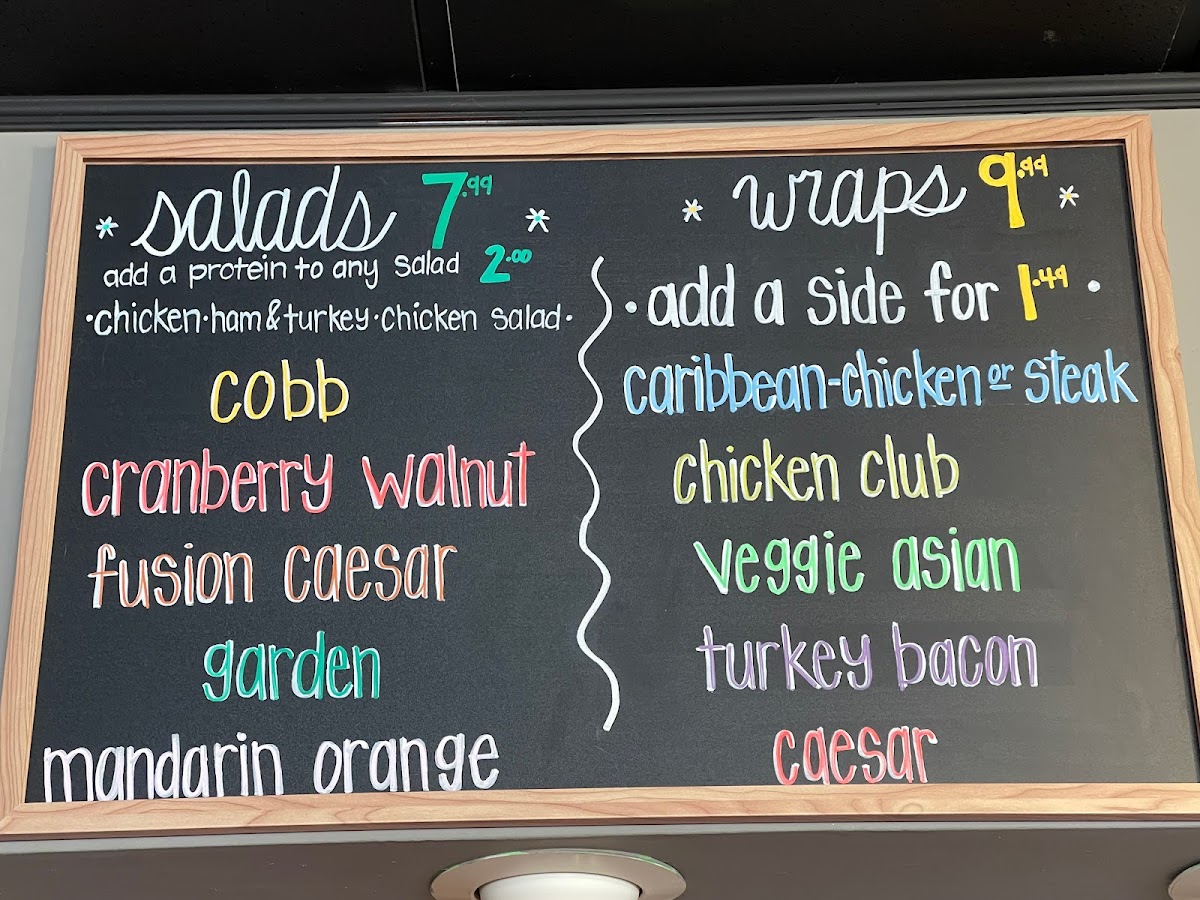 salads 7.99
add a protein to any salad 2.00
•chicken•ham & turkey•chicken salad•
cobb
cranberry walnut
fusion caesar
garden
mandarin orange
wraps 9.99
•add a side for 1.49•
caribbean-chicken or steak
chicken club
veggie asian
turkey bacon
caesar